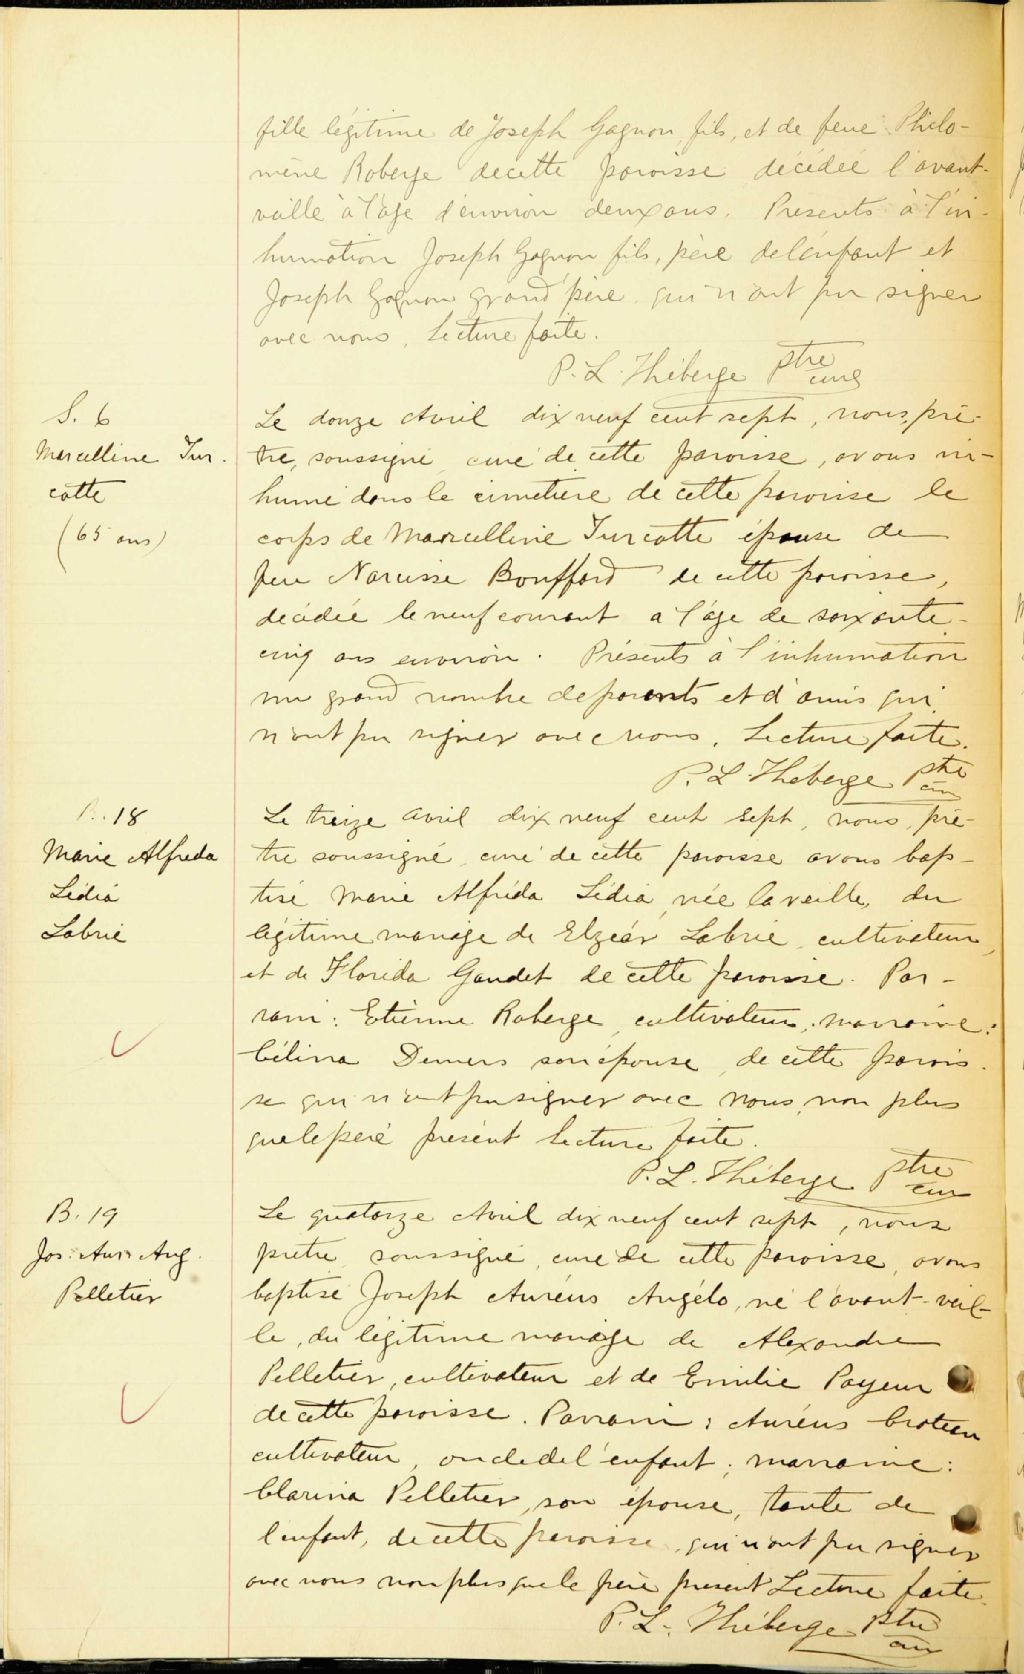 fille légitime de Joseph Gagnon fils, et de feue Philo-
mène Roberge de cette paroisse décédée l'avant-
veille à l'âge d'environ deux ans. Présents à l'in-
humation Joseph Gagnon fils, père de l'enfant et
Joseph Gagnon grand'père qui n'ont pu signer
avec nous. Lecture faite.
P. L. Théberge ptre
curé
S. 6
Marcelline Tur-
cotte
(65 ans)
Le douze Avril dix neuf cent sept, nous, prê-
tre, soussigné curé de cette paroisse, avons in-
humé dans le cimetière de cette paroisse le
corps de Marcelline Turcotte épouse de
feu Narcisse Bouffard de cette paroisse,
décédée le neuf courant a l'âge de soixante-
cinq ans environ. Présents à l'inhumation
un grand nombre de parents et d'amis qui
n'ont pu signer avec nous. Lecture faite.
P. L. Théberge ptre
cur
B. 18
Marie Alfreda
Lédia
Labrie
Le treize avril dix neuf cent sept, nous, prê-
tre soussigné, curé de cette paroisse avons bap-
tisé Marie Alfréda Lédia, née la veille, du
légitime mariage de Elzéar Labrie, cultivateur,
et de Florida Gaudet de cette paroisse. Par-
rain: Etienne Roberge, cultivateur, marraine:
Célina Demers son épouse, de cette parois-
se qui n'ont pu signer avec nous, non plus
que le père présent lecture faite.
P. L. Théberge ptre
cur
B. 19
Jos. Aurs Ang.
Pelletier
Le quatorze Avril dix neuf cent sept, nous
prêtre soussigné, curé de cette paroisse, avons
baptisé Joseph Auréus Angélo, né l'avant-veil-
le, du légitime mariage de Alexandre
Pelletier, cultivateur et de Emilie Payeur
de cette paroisse. Parrain: Auréus Croteau
cultivateur, oncle de l'enfant; marraine:
Clarina Pelletier, son épouse, tante de
l'enfant, de cette paroisse, qui n'ont pu signer
avec nous non plus que le père présent Lecture faite.
P. L. Théberge ptre
cur